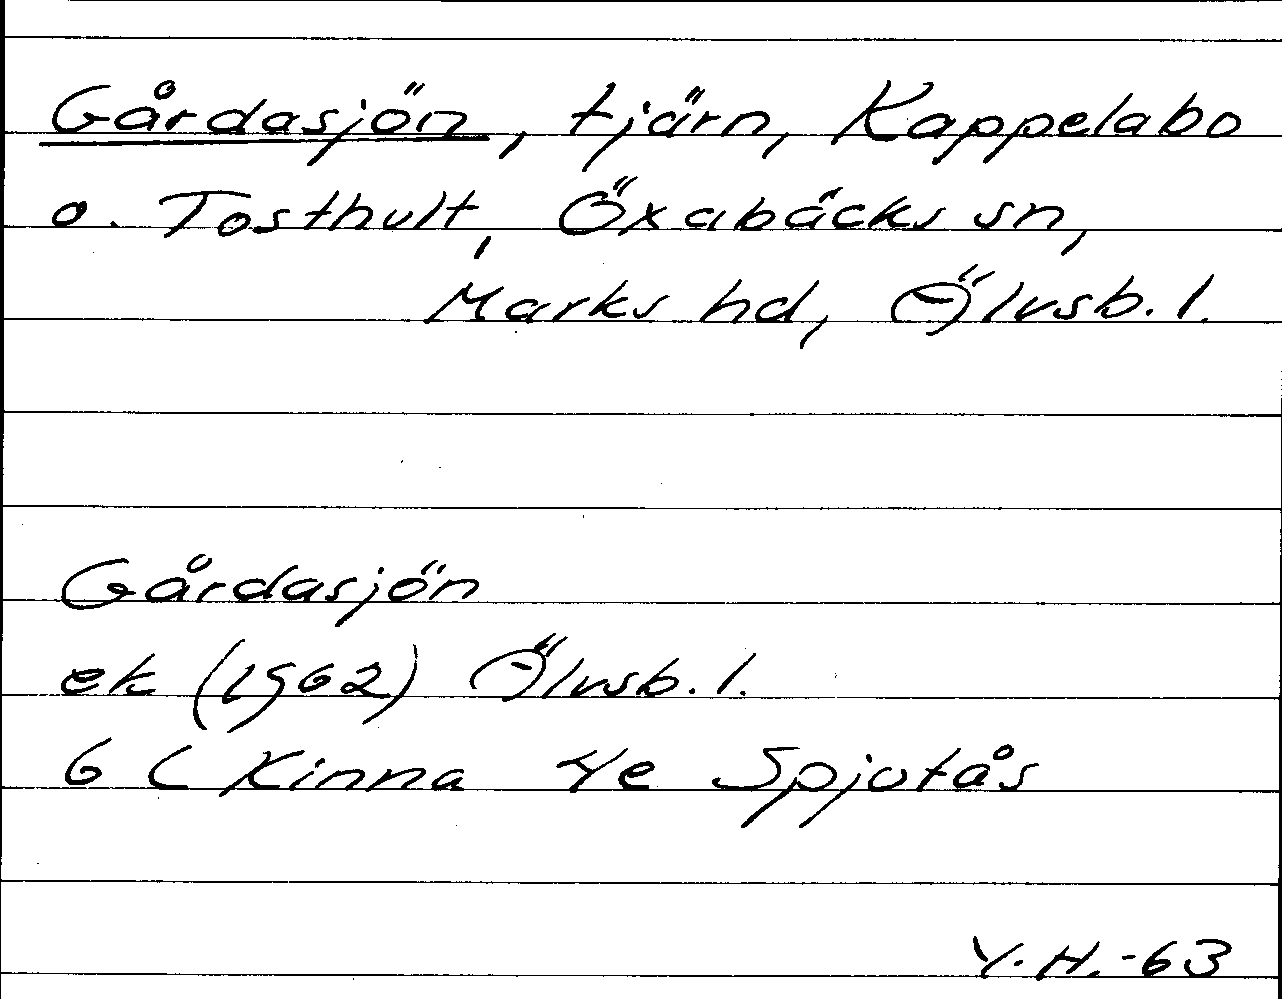 Gårdasjön, tjärn, Kappelabo
o. Tosthult, Öxabäcks sn,
Marks hd, Älvsb. l.
Gårdasjön
ek (1962) Älvsb. l.
6 C Kinna 4e Spjutås
Y. H. -63